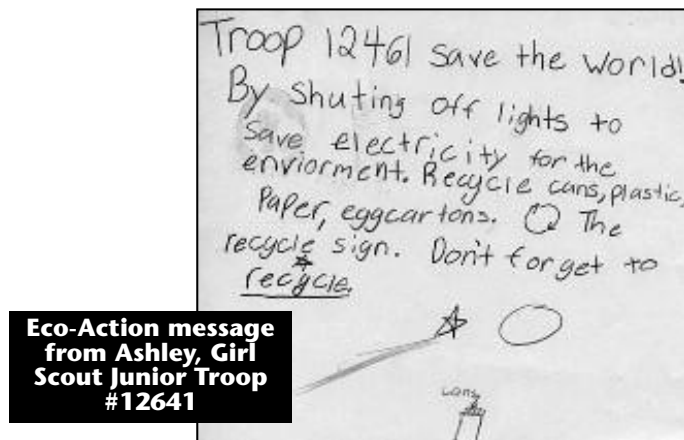 Troop 12461 save the world!
By shuting off lights to
save electricity for the
enviorment. Recycle cans, plastic,
Paper, eggcartons. The
recycle sign. Don't forget to
recycle.
cans
Eco-Action message
from Ashley, Girl
Scout Junior Troop
#12641